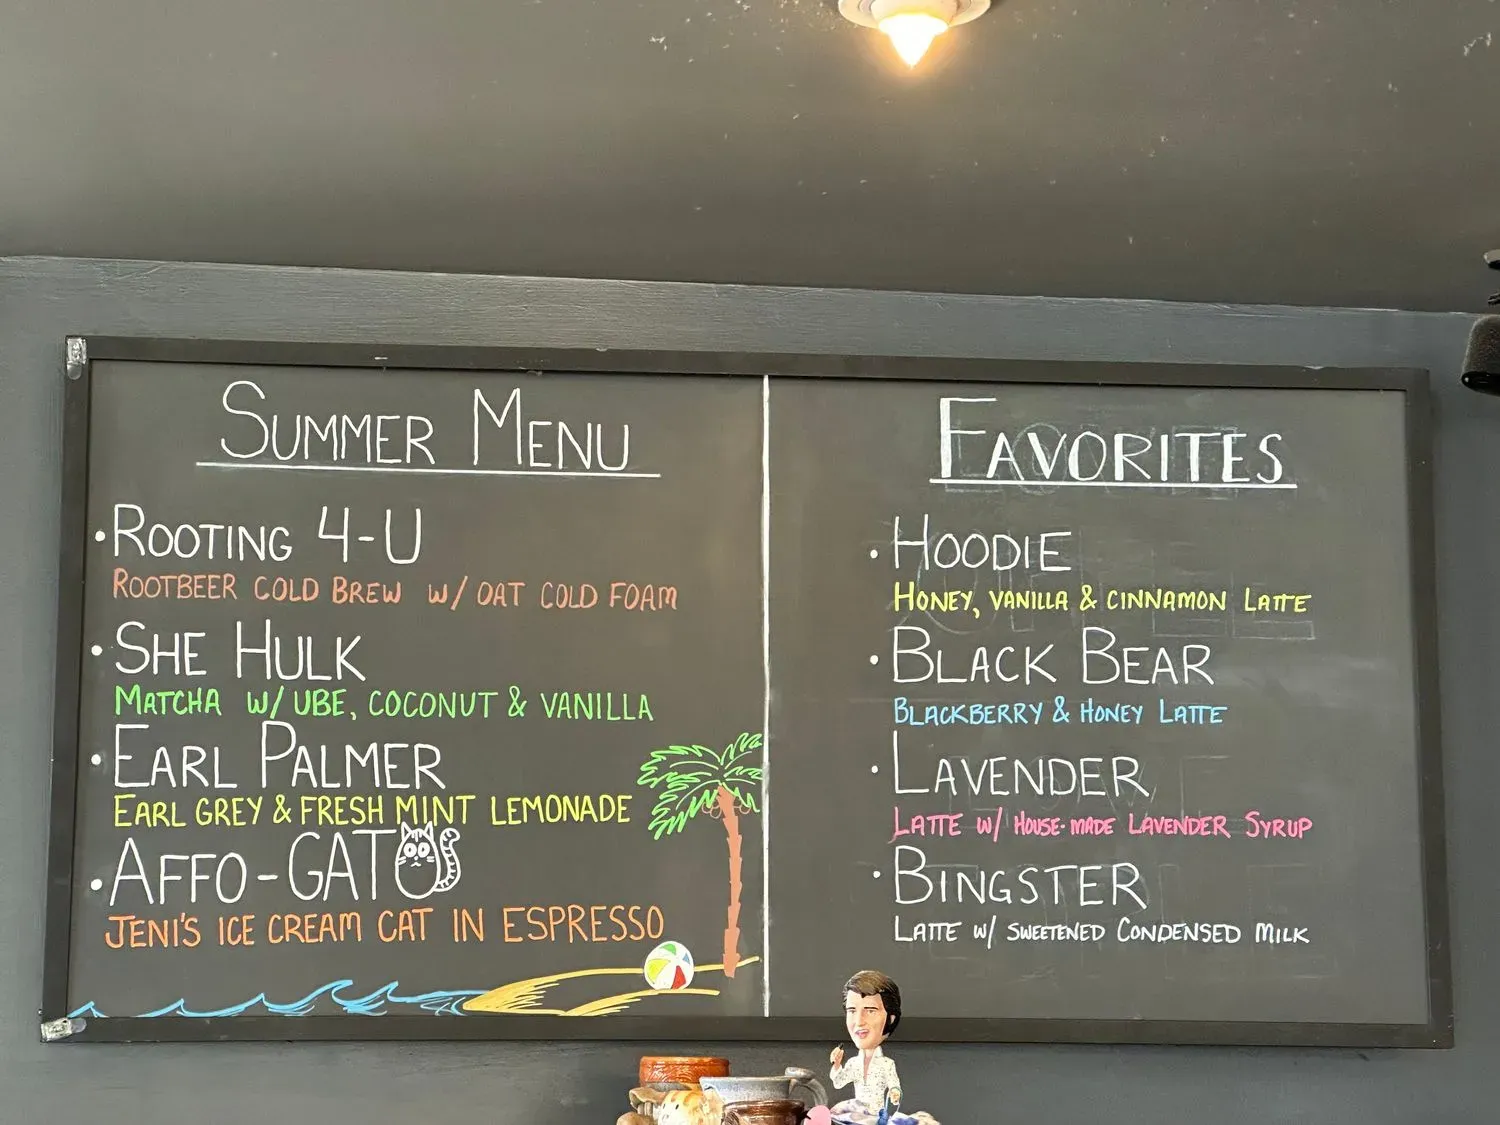 SUMMER MENU
• ROOTING 4-U
ROOTBEER COLD BREW W/ OAT COLD FOAM
• SHE HULK
MATCHA W/ UBE, COCONUT & VANILLA
• EARL PALMER
EARL GREY & FRESH MINT LEMONADE
• AFFO-GATO
JENI'S ICE CREAM CAT IN ESPRESSO
FAVORITES
• HOODIE
HONEY, VANILLA & CINNAMON LATTE
• BLACK BEAR
BLACKBERRY & HONEY LATTE
• LAVENDER
LATTE W/ HOUSE-MADE LAVENDER SYRUP
• BINGSTER
LATTE W/ SWEETENED CONDENSED MILK